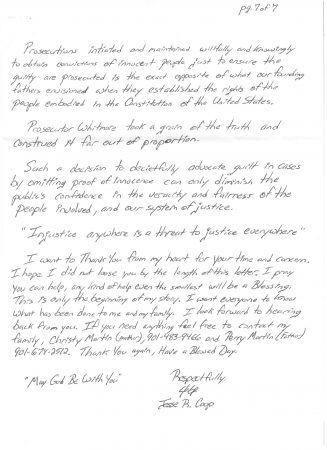 pg 7 of 7
Prosecutions intiated and maintained willfully and knowingly
to obtain convictions of innocent people just to ensure the
guilty are prosecuted is the exact opposite of what our founding
fathers envisioned when they established the rights of the
people embodied in the Constitution of the United States.
Prosecutor Whitmore took a grain of the truth and
construed it far out of proportion.
Such a decision to decietfully advocate guilt in cases
by omitting proof of innocence can only diminish the
public's confidence in the veracity and fairness of the
people involved, and our system of justice.
"Injustice anywhere is a threat to justice everywhere"
I want to Thank You from my heart for your time and concern.
I hope I did not loose you by the length of this letter, I pray
you can help, any kind of help even the smallest will be a Blessing.
This is only the beginning of my story. I want everyone to know
what has been done to me and my family. I look forward to hearing
back from you. If you need anything feel free to contact my
family, Christy Martin (mother), 901-483-9466 and Perry Martin (Father)
901-674-2512. Thank You again, Have a Blessed Day.
"May God Be With You"
Respectfully,
Jesse R.